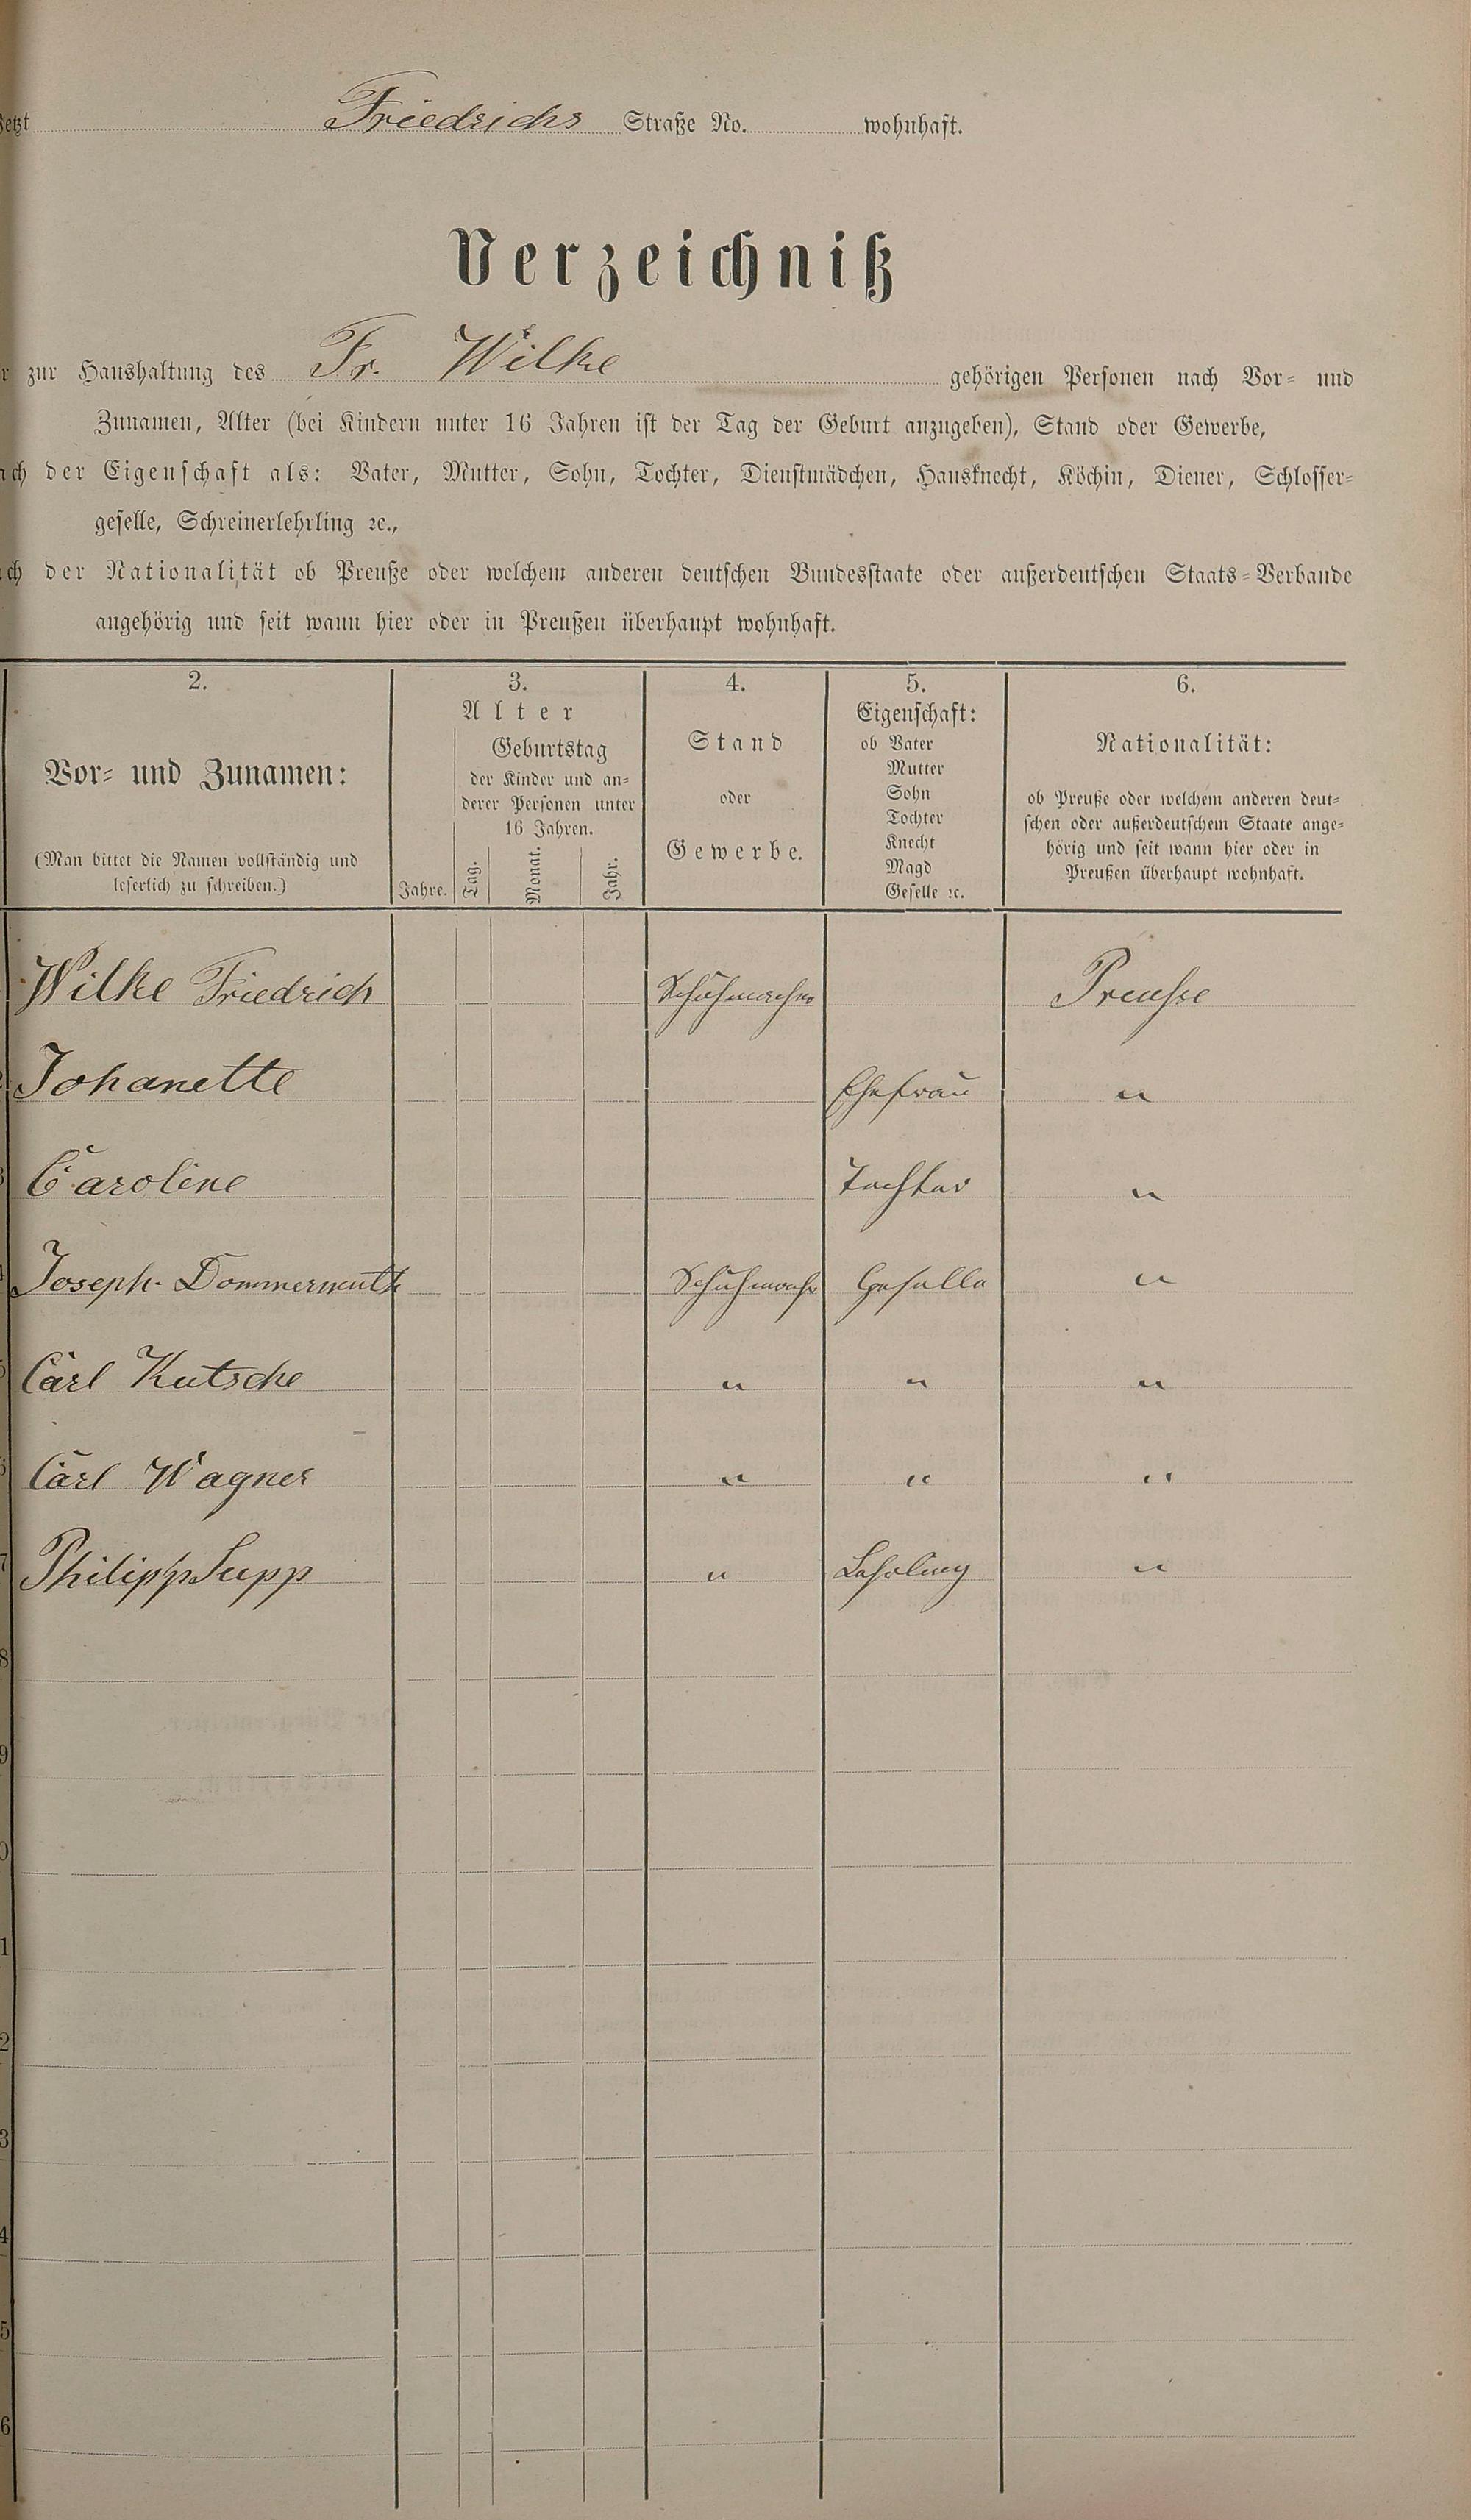 Jetzt Friedrichs Straße No. wohnhaft.
Verzeichniß
zur Haushaltung des Fr. Wilke gehörigen Personen nach Vor- und
Zunamen, Alter (bei Kindern unter 16 Jahren ist der Tag der Geburt anzugeben), Stand oder Gewerbe,
der Eigenschaft als: Vater, Mutter, Sohn, Tochter, Dienstmädchen, Hausknecht, Köchin, Diener, Schlosser-
geselle, Schreinerlehrling ꝛc.,
der Nationalität ob Preuße oder welchem anderen deutschen Bundesstaate oder außerdeutschen Staats-Verbande
angehörig und seit wann hier oder in Preußen überhaupt wohnhaft.
2.
Vor- und Zunamen:
(Man bittet die Namen vollständig und
leserlich zu schreiben.)
3.
Alter
Geburtstag
der Kinder und an-
derer Personen unter
16 Jahren.
Jahre. Tag. Monat. Jahr.
4.
Stand
oder
Gewerbe.
5.
Eigenschaft:
ob Vater
Mutter
Sohn
Tochter
Knecht
Magd
Geselle ꝛc.
6.
Nationalität:
ob Preuße oder welchem anderen deut-
schen oder außerdeutschem Staate ange-
hörig und seit wann hier oder in
Preußen überhaupt wohnhaft.
Wilke Friedrich Schuhmacher Preusse
Johanette Ehefrau "
3 Caroline Tochter "
4 Joseph Dommermuth Schuhmacher Geselle "
5 Carl Kutsche " " "
6 Carl Wagner " " "
7 Philipp Supp " Lehrling "
8
9
0
1
2
3
4
5
6